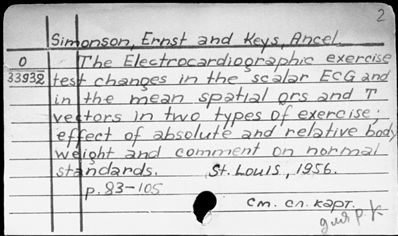 2
Simonson, Ernst and Keys, Ancel.
0 The Electrocardiographic exercise
33932 test changes in the scalar ECG and
in the mean spatial qrs and T
vectors in two types of exercise;
effect of absolute and relative body
weight and comment on normal
standards. St. Louis, 1956.
p. 83-105
см. сл. карт.
для р. к